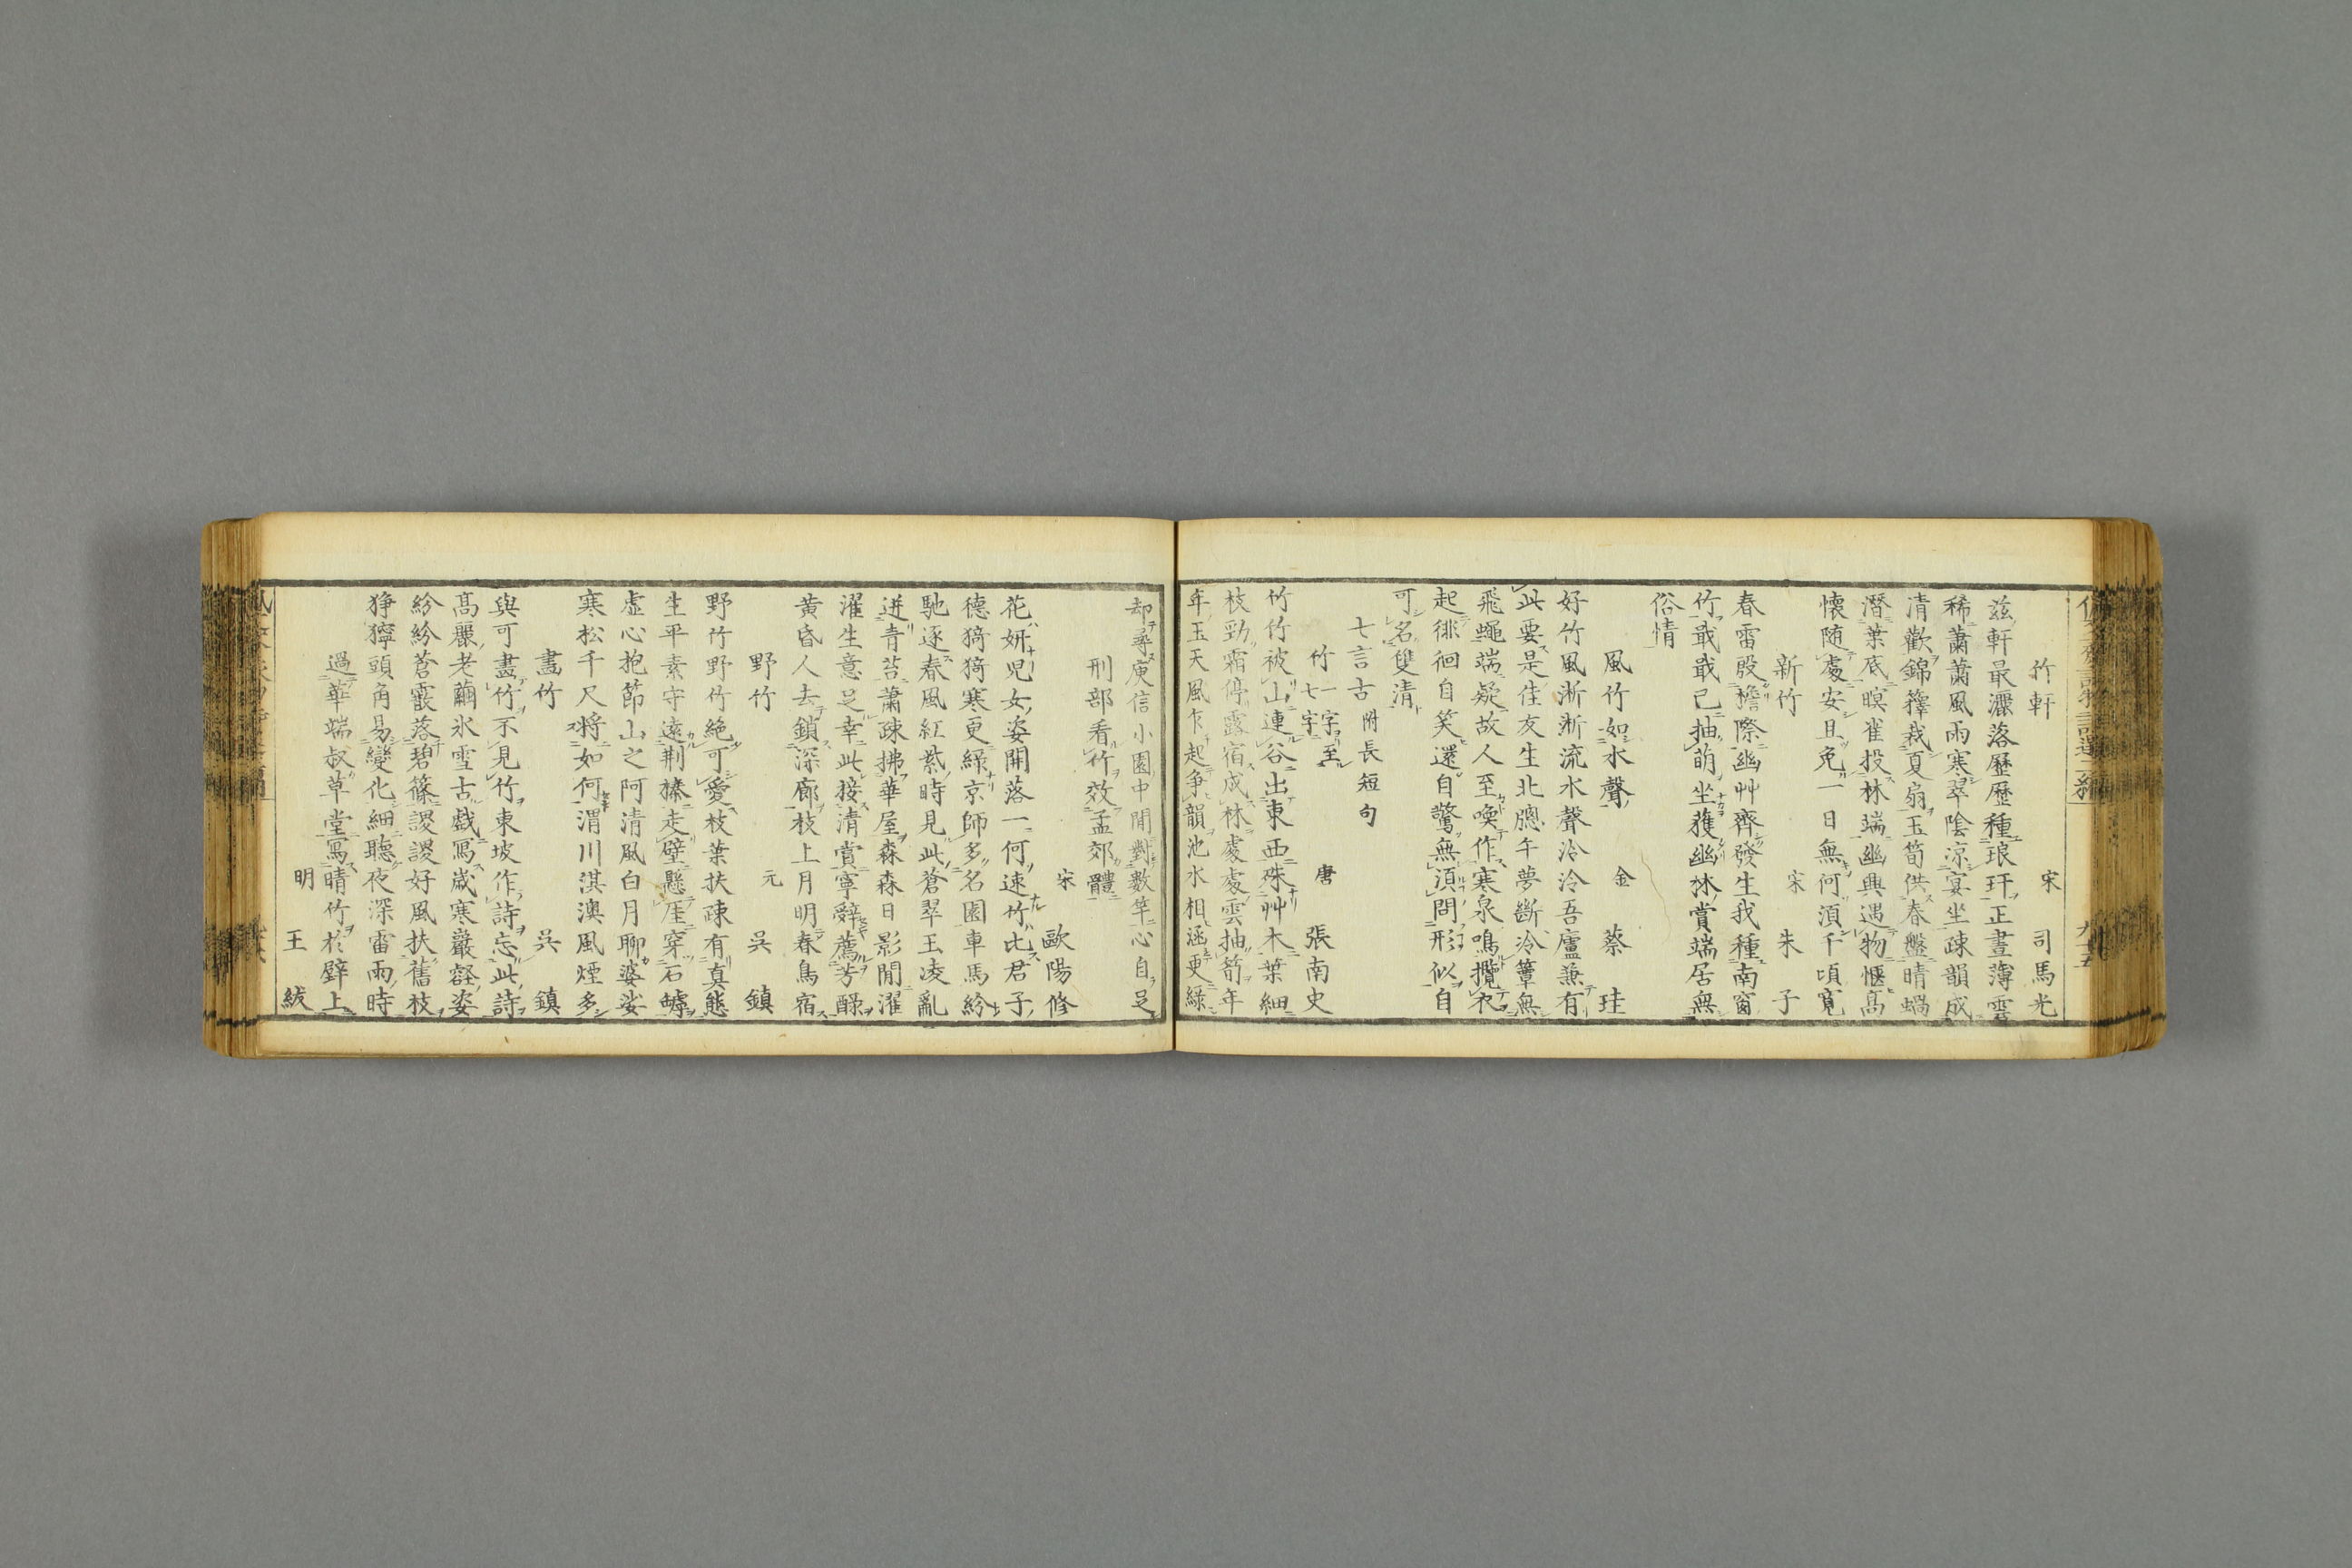 竹軒 宋 司馬光
茲軒最灑落歷歷種琅玕正晝薄雲
稀蕭蕭風雨寒翠陰涼宴坐疎韻成
清歡錦籜裁夏扇玉筍供春盤晴蝸
潛葉底暝雀投林端幽興遇物愜高
懷随處安且免一日無何湏千頃寬
新竹 宋 朱子
春雷殷簷際幽艸齊發生我種南窗
竹戢戢已抽萌坐獲幽林賞端居無
俗情
風竹如水聲 金 蔡珪
好竹風淅淅流水聲泠泠吾廬兼有
此要是佳友生北牕午夢斷冷簟無
飛蠅端疑故人至喚作寒泉鳴攬衣
起徘徊自笑還自驚無湏問形似自
可名雙清
七言古 附長短句
竹 一字至七字 唐 張南史
竹竹被山連谷出東西殊艸木葉細
枝勁霜停露宿成林處處雲抽筍年
年玉天風乍起争韻池水相涵更緑
却尋庾信小園中閒對數竿心自足
刑部看竹效孟郊體
宋 歐陽修
花妍児女姿開落一何速竹比君子
德猗猗寒更緑京師多名園車馬紛
馳逐春風紅紫時見此蒼翠玉凌亂
迸青苔蕭疎拂華屋森森日影閒濯
濯生意足幸此接清賞寧辭薦芳醁
黄昏人去鎖深廊枝上月明春鳥宿
野竹 元 吳鎮
野竹野竹絶可愛枝葉扶疎有真態
生平素守遠荆榛走壁懸厓穿石罅
虚心抱節山之阿清風白月聊婆娑
寒松千尺將如何渭川淇澳風煙多
畫竹 吳鎮
與可畫竹不見竹東坡作詩忘此詩
髙麗老繭氷雪古戲寫歲寒嚴壑姿
紛紛蒼霰落碧篠謖謖好風扶舊枝
猙獰頭角易變化細聽夜深雷雨時
過華端叔草堂寫晴竹於壁上
明 王紱